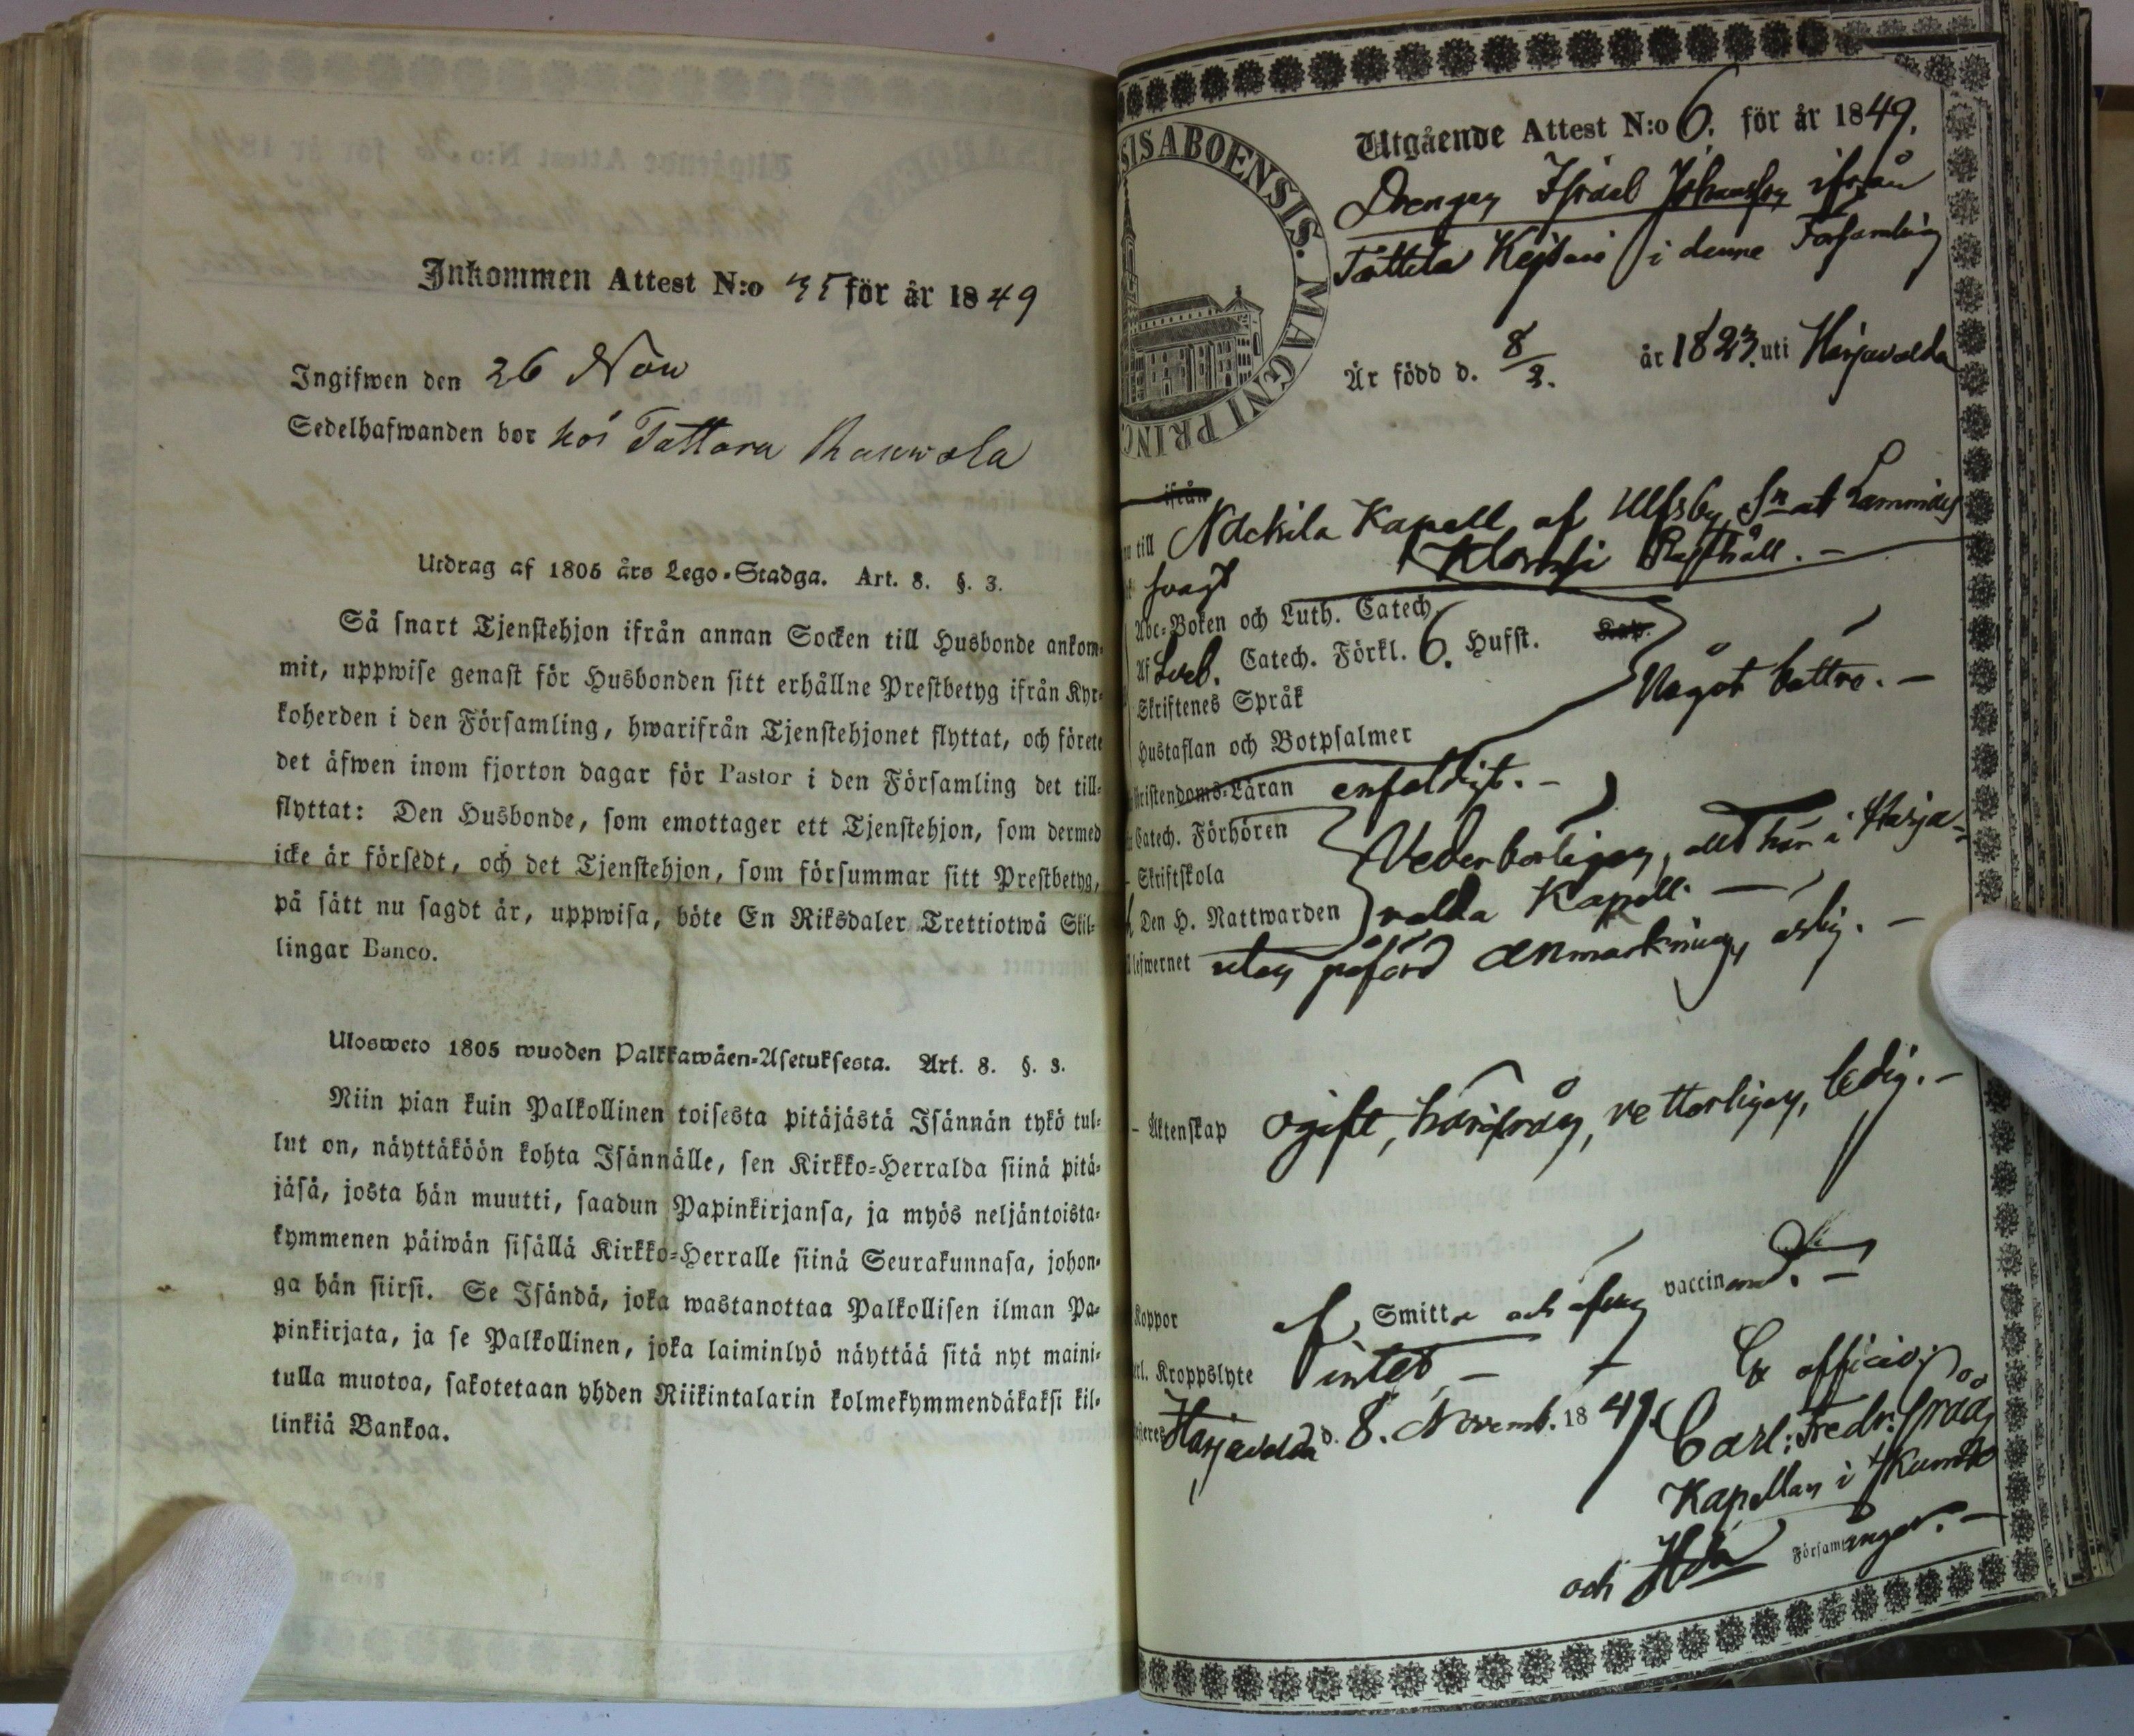 Inkommen Attest N:o 35 för år 1849
Ingifwen den 26 Nov
Sedelhafwanden bor hos Tattara
Utdrag af 1805 års Lego-Stadga. Art. 8. §. 3.
Så snart Tjenstehjon ifrån annan Socken till Husbonde ankom-
mit, uppwise genast för Husbonden sitt erhållne Prestbetyg ifrån Kyr-
koherden i den Församling, hwarifrån Tjenstehjonet flyttat, och förete
det äfwen inom fjorton dagar för Pastor i den Församling det till-
flyttat: Den Husbonde, som emottager ett Tjenstehjon, som dermed
icke är försedt, och det Tjenstehjon, som försummar sitt Prestbetyg,
på sätt nu sagdt är, uppwisa, böte En Riksdaler Trettiotwå Skil-
lingar Banco.
Ulosweto 1805 wuoden Palkkawäen-Asetuksesta. Art. 8. §. 3.
Niin pian kuin Palkollinen toisesta pitäjästä Isännän tykö tul-
lut on, näyttäköön kohta Isännälle, sen Kirkko-Herralda siinä pitä-
jäsä, josta hän muutti, saadun Papinkirjansa, ja myös neljäntoista-
kymmenen päiwän sisällä Kirkko-Herralle siinä Seurakunnasa, johon-
ga hän siirsi. Se Isändä, joka wastanottaa Palkollisen ilman Pa-
pinkirjata, ja se Palkollinen, joka laiminlyö näyttää sitä nyt maini-
tulla muotoa, sakotetaan yhden Riikintalarin kolmekymmendäkaksi kil-
linkiä Bankoa.
SISABOENSIS. MAGNI PRINC
Utgående Attest N:o 6. för år 1849.
Drengen Israel Johansson ifrån
i denne Församling
Är född d. 8/2. år 1823. uti Harjavalda
ifrån
till Nackila Kapell af Ulfsby Sn at Lammais
Rusthåll. —
svagt
Abc-Boken och Luth. Catech.
Af Sveb. Catech. Förkl. 6. Hufst. Kap.
Något battre. —
Skriftenes Språk
Hustaflan och Botpsalmer
Christendoms-Läran enfaldigt. —
Catech. Förhören
Vederborligen, allt här i Harja-
Skriftskola
Den H. Nattwarden valda Kapell —
Lefwernet utan påförd anmarkning, ärlig. —
Äktenskap ogift, härifrån, vetterligen, ledig. —
Koppor af Smitta och äfven vaccinerad. —
Kroppslyte intet —
Ex officio:
Harjavalda d. 8. Novemb. 1849. Carl: Fredr: Gråå,
Kapellan i Kumo
och Församlingar. —